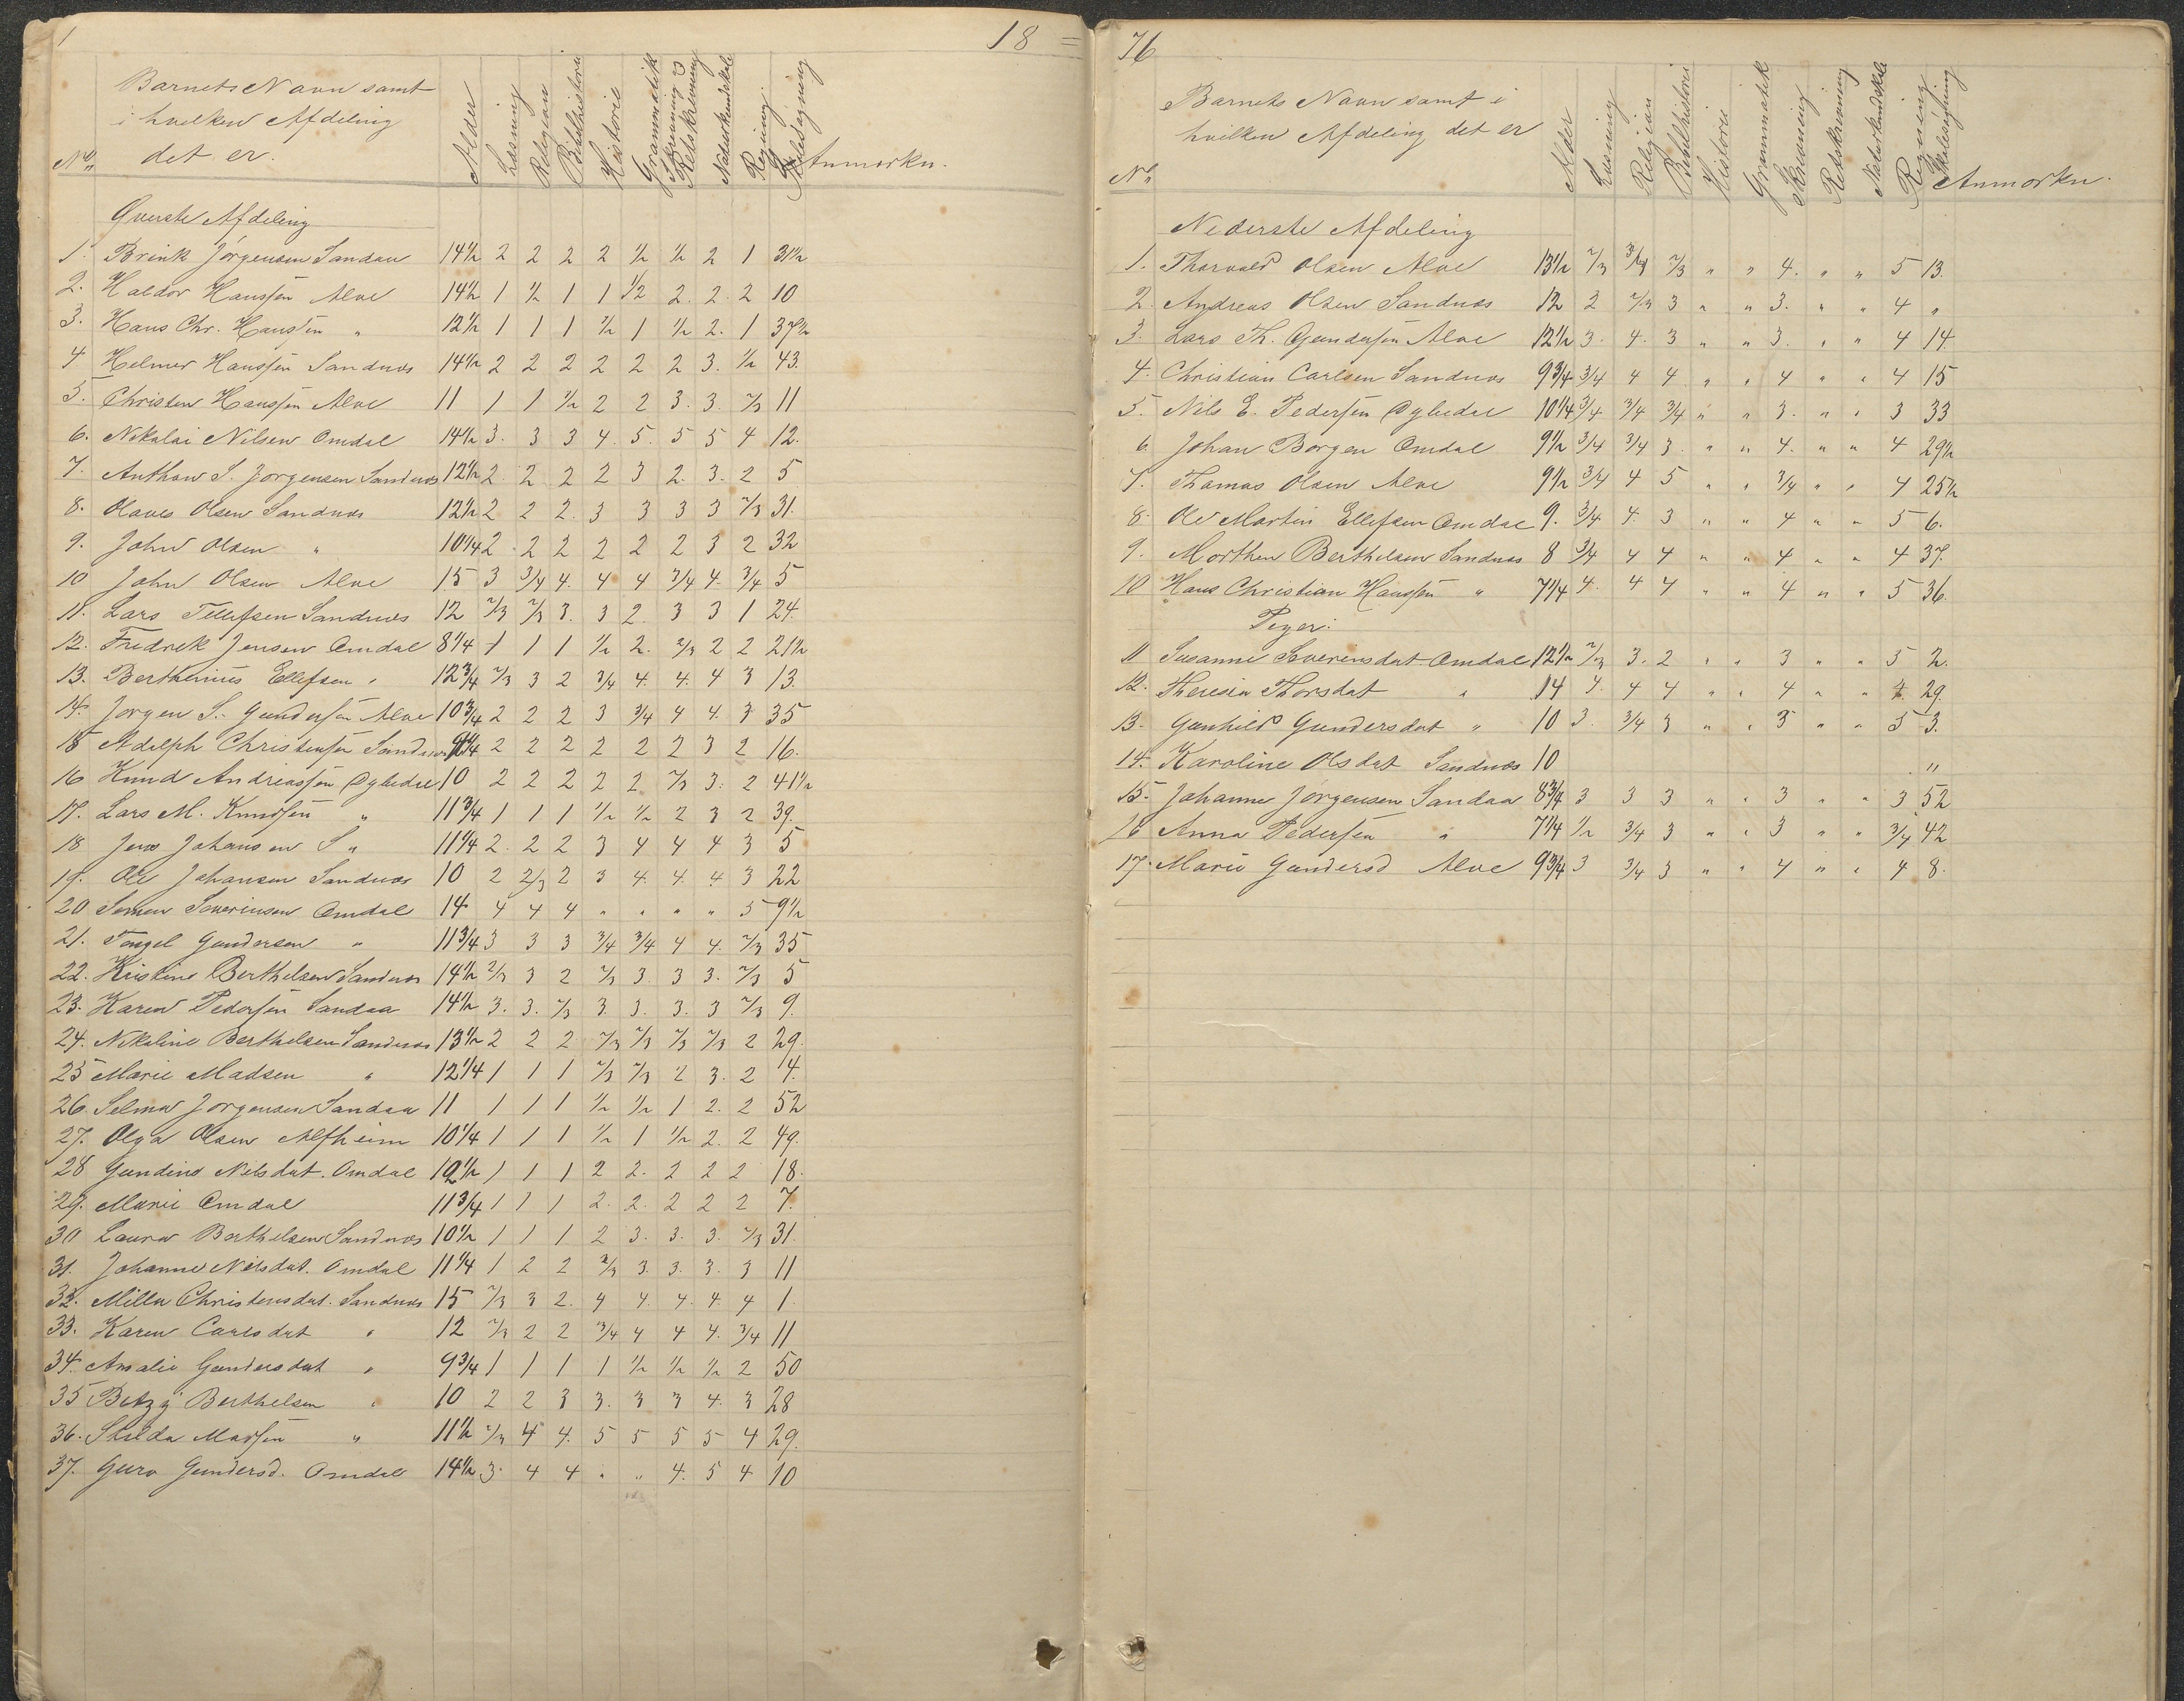 1
18 =
Barnets Navn samt
i hvilken Afdeling
det er.
No
Alder
Læsning
Religion
Bibelhistorie
Historie
Grammatik
Skrivning &
Retskrivning
Naturkundskab
Regning
Skolesøgning
Anmærkn.
Øverste Afdeling
1. Brink Jörgensen Sandaa 14½ 2 2 2 2 ½ ½ 2 1 31½
2. Haldor Hanssen Alve 14½ 1 ½ 1 1 ½ 2. 2. 2 10
3. Hans Chr. Hanssen " 12½ 1 1 1 ½ 1 ½ 2. 1 37½
4 Helmer Hanssen Sandnæs 14½ 2 2 2 2 2 2 3. ½ 43.
5. Christen Hanssen Alve 11 1 1 ½ 2 2 3. 3. 2/3 11
6. Nikolai Nilsen Omdal 14½ 3. 3 3 4. 5. 5 5 4 12.
7. Anthon S. Jörgensen Sandnæs 12½ 2. 2 2 2 3 2. 3. 2 5
8. Olaves Olsen Sandnæs 12½ 2 2 2. 3 3 3 3 2/3 31.
9. John Olsen " 10¼ 2 2 2 2 2 2 3 2 32
10 John Olsen Alve 15 3 3/4 4. 4 4 3/4 4. 3/4 5
11. Lars Tellefsen Sandnæs 12 2/3 2/3 3. 3 2. 3 3 1 24.
12. Fredrik Jensen Omdal 8¼ 1 1 1 ½ 2. 2/3 2 2 21½
13. Berthinius Ellefsen " 12¾ 2/3 3 2 3/4 4. 4. 4 3 13.
14. Jörgen S. Gundersen Alve 10¾ 2 2 2 3 3/4 4 4. 3 35
15 Adolph Christensen Sandnæs 9¼ 2 2 2 2 2 2 3 2 16.
16 Knud Andreassen Dybedal 10 2 2 2 2 2 2/3 3. 2 41½
17. Lars M. Knudsen " 11¾ 1 1 1 ½ ½ 2 3 2 39.
18 Jens Johansen S " 11¼ 2. 2 2 3 4 4 4 3 5
19. Ole Johansen Sandnæs 10 2 2/3 2 3 4. 4. 4 3 22
20 Semen Severinsen Omdal 14 4 4 4 " " " " 5 9½
21. Tengel Gundersen " 11¾ 3 3 3 3/4 3/4 4 4. 2/3 35
22. Kristine Berthelsen Sandnæs 14½ 2/3 3 2 2/3 3. 3 3. 2/3 5
23. Karen Pedersen Sandaa 14½ 3. 3. 2/3 3. 3. 3. 3 2/3 9.
24. Nikoline Berthelsen Sandnæs 13½ 2 2 2 2/3 2/3 2/3 2/3 2 29.
25 Marie Madsen " 12¼ 1 1 1 2/3 2/3 2 3. 2 4.
26. Selma Jorgensen Sandaa 11 1 1 1 ½ ½ 1 2. 2 52
27. Olga Olsen Alfheim 10¼ 1 1 1 ½ 1 ½ 2. 2 49.
28 Gundine Nilsdat. Omdal 12½ 1 1 1 2 2. 2 2 2 18.
29. Marie Omdal 11¾ 1 1 1 2. 2. 2 2 2 7.
30 Laura Berthelsen Sandnæs 10½ 1 1 1 2 3. 3. 3. 2/3 31.
31. Johanne Nilsdat. Omdal 11¼ 1 2 2 2/3 3. 3. 3. 3 11
32. Milla Christensdat. Sandnæs 15 2/3 3 2. 4 4. 4. 4. 4 1.
33. Karen Carlsdat " 12 2/3 2 2 3/4 4 4 4. 3/4 11
34. Amalie Gundersdat " 9¾ 1 1 1 1 ½ ½ ½ 2 50
35 Betzy Berthelsen " 10 2 2 3 3. 3 3 4. 3 28
36. Hilda Madsen " 11½ 2/3 4 4. 5 5 5 5 4 29.
37. Guro Gundersd. Omdal 14½ 3. 4 4 " " 4. 5 4 10
76
Barnets Navn samt i
hvilken Afdeling det er
No
Alder
Læsning
Religion
Bibelhistorie
Historie
Grammatik
Skrivning
Retskrivning
Naturkundskab
Regning
Skolesøgning
Anmærkn.
Nederste Afdeling
1. Thorvald Olsen Alve 13½ 2/3 3/4 2/3 " " 4. " " 5 13.
2. Andreas Olsen Sandnæs 12 2 2/3 3 " " 3. " " 4 "
3. Lars Th. Gundersen Alve 12½ 3. 4. 3 " " 3. " " 4 14.
4. Christian Carlsen Sandnæs 9¾ 3/4 4 4 " " 4 " " 4 15
5. Nils E. Pedersen Dybedal 10¼ 3/4 3/4 3/4 " " 3. " " 3 33
6. Johan Borgen Omdal 9½ 3/4 3/4 3 " " 4. " " 4 29½
7. Thomas Olsen Alve 9½ 3/4 4 5 " " 3/4 " " 4 25½
8. Ole Martin Ellefsen Omdal 9. 3/4 4. 3 " " 4 " " 5 6.
9. Morthen Berthelsen Sandnæs 8 3/4 4 4 " " 4 " " 4 37.
10 Hans Christian Hanssen " 7¼ 4. 4 4 " " 4 " " 5 36.
Piger:
11 Susanne Severensdat Omdal 12½ 2/3 3. 2 " " 3 " " 5 2.
12. Theresia Thorsdat " 14 4. 4 4 " " 4 " " 4 29.
13. Gunhild Gundersdat " 10 3. 3/4 3 " " 3 " " 5 3.
14. Karoline Olsdat Sandnæs 10 "
15. Johanne Jörgensen Sandaa 8¾ 3 3 3 " " 3 " " 3 52
16 Anna Pedersen " 7¼ ½ 3/4 3 " " 3 " " 3/4 42
17. Marie Gundersd Alve 9¾ 3 3/4 3 " " 4 " " 4 8.